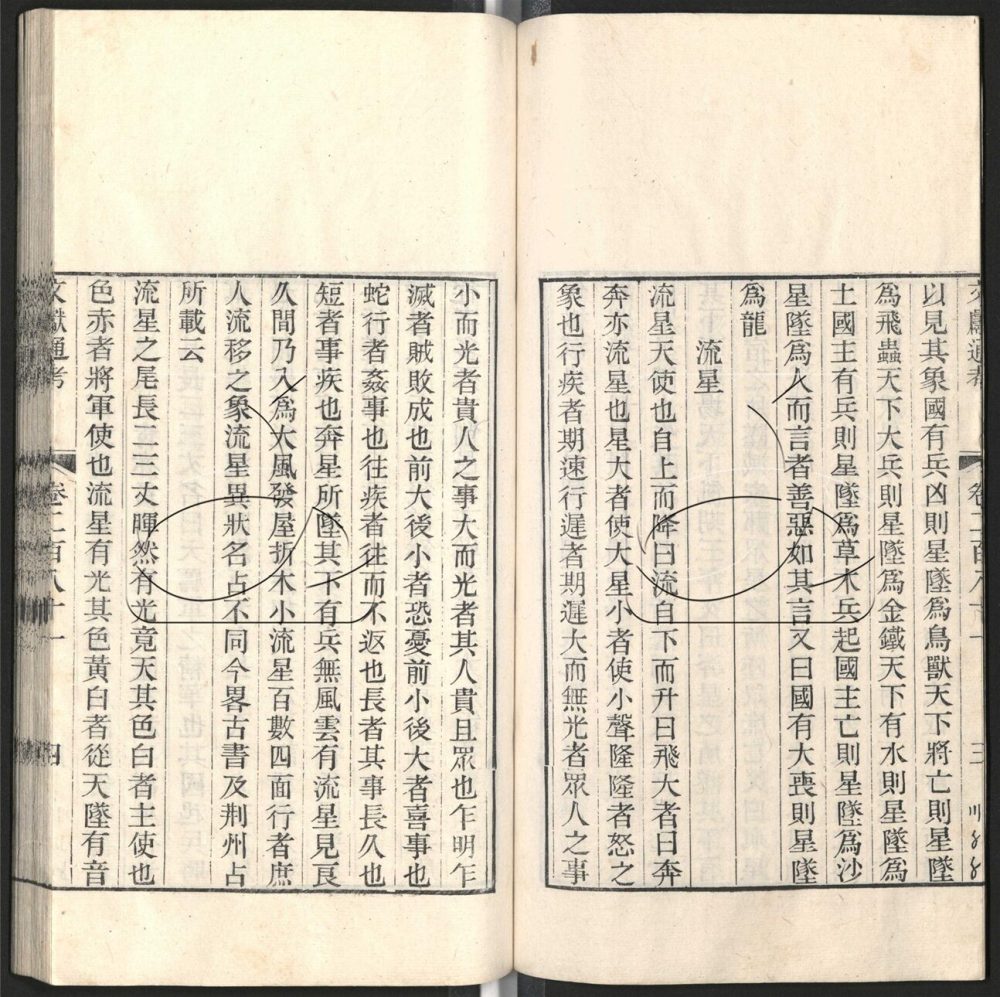 以見其象國有兵凶則星墜爲鳥獸天下將亡則星墜
爲飛蟲天下大兵則星墜爲金鐵天下有水則星墜爲
土國主有兵則星墜爲草木兵起國主亡則星墜爲沙
星墜爲人而言者善惡如其言又曰國有大喪則星墜
爲龍
流星
流星天使也自上而降曰流自下而升曰飛大者曰奔
奔亦流星也星大者使大星小者使小聲隆隆者怒之
象也行疾者期速行遲者期遲大而無光者眾人之事
小而光者貴人之事大而光者其人貴且眾也乍明乍
滅者賊敗成也前大後小者恐憂前小後大者喜事也
蛇行者姦事也往疾者往而不返也長者其事長久也
短者事疾也奔星所墜其下有兵無風雲有流星見良
久間乃入爲大風發屋折木小流星百數四面行者庶
人流移之象流星異狀名占不同今畧古書及荆州占
所載云
流星之尾長二三丈暉然有光竟天其色白者主使也
色赤者將軍使也流星有光其色黃白者從天墜有音
文獻通考 卷二百八十一 四